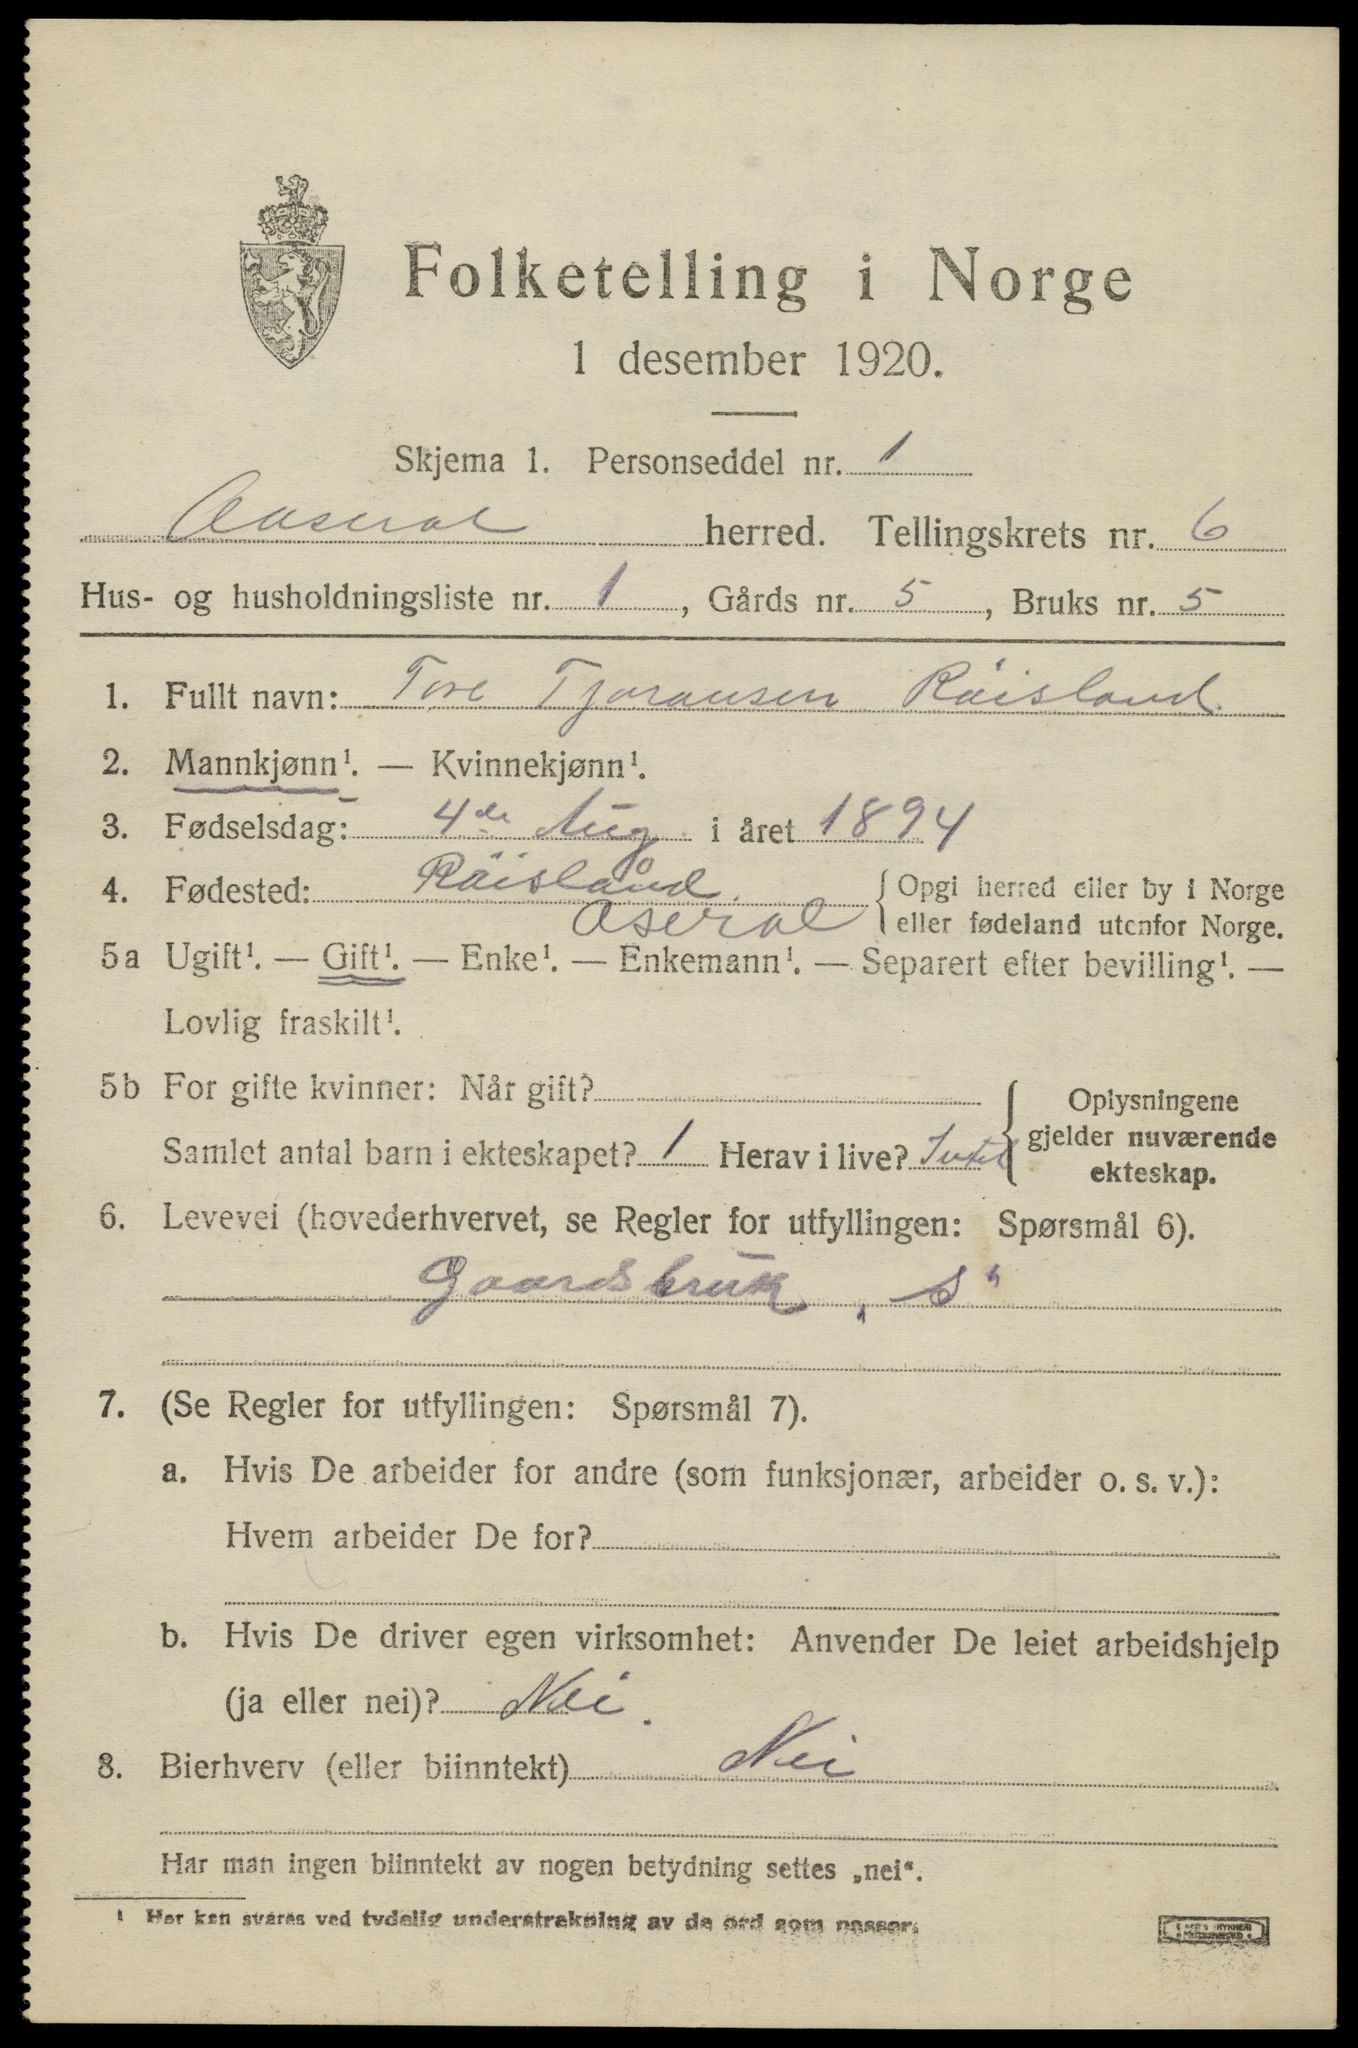 Folketelling i Norge
1 desember 1920.
Skjema 1. Personseddel nr. 1
Aaseral herred. Tellingskrets nr. 6
Hus- og husholdningsliste nr. 1, Gårds nr. 5, Bruks nr. 5
1. Fullt navn: Tore Tjoransen Röisland
2. Mannkjønn¹. — Kvinnekjønn¹.
3. Fødselsdag: 4de Aug. i året 1894
4. Fødested: Röisland Åseral { Opgi herred eller by i Norge
eller fødeland utenfor Norge.
5a Ugift¹. — Gift¹. — Enke¹. — Enkemann¹. — Separert efter bevilling¹. —
Lovlig fraskilt¹.
5b For gifte kvinner: Når gift?
Samlet antal barn i ekteskapet? 1 Herav i live?
Oplysningene
gjelder nuværende
ekteskap.
6. Levevei (hovederhvervet, se Regler for utfyllingen: Spørsmål 6).
Gaardsbruk „S“
7. (Se Regler for utfyllingen: Spørsmål 7).
a. Hvis De arbeider for andre (som funksjonær, arbeider o. s. v.):
Hvem arbeider De for?
b. Hvis De driver egen virksomhet: Anvender De leiet arbeidshjelp
(ja eller nei)? Nei.
8. Bierhverv (eller biinntekt) Nei
Har man ingen biinntekt av nogen betydning settes „nei“.
¹ Her kan svares ved tydelig understrekning av de ord som passer.